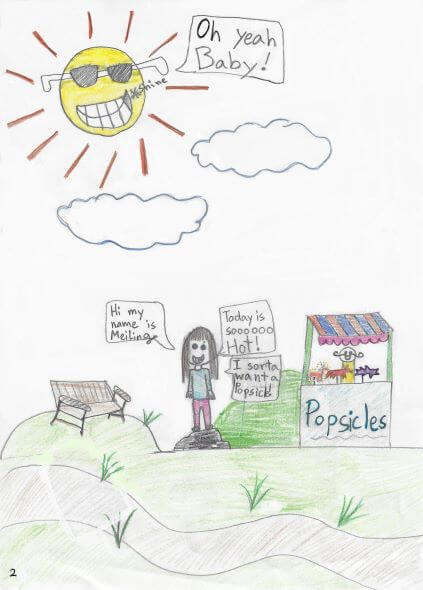 Oh yeah
Baby!
*Shine
Hi my
name is
Meiling
Today is
soooooo
HOT!
I sorta
want a
Popsicle!
Popsicles
2